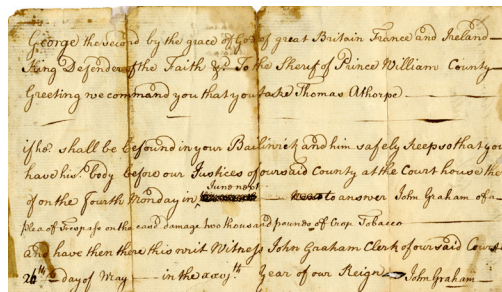 George the second by the grace of God of great Britain France and Ireland
King Defender of the Faith &c. To the Sherif of Prince William County
Greeting we command you that you take Thomas Athorpe
if he shall be found in your Bailiwick and him safely keep so that you
have his body before our Justices of our said County at the Court house the
of on the fourth Monday in
June next
to answer John Graham of a
plea of Trespass on the case damage two thousand pounds of Crop Tobacco
and have then there this writ Witness John Graham Clerk of our said Court
26th day of May in the xxvi.th Year of our Reign John Graham